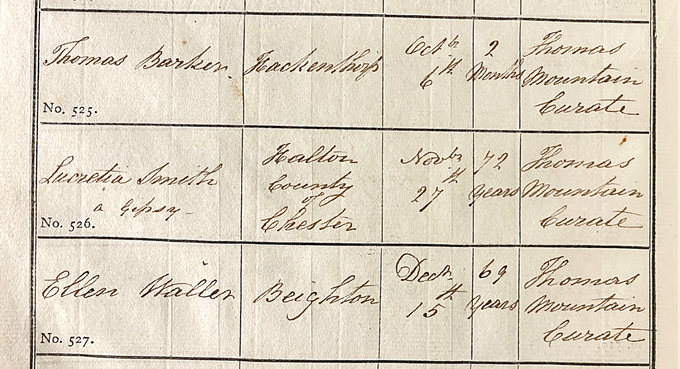 Thomas Barker.
No. 525.
Hackenthorp
Octbr
6th
2
Months
Thomas
Mountain
Curate
Lucretia Smith
a Gipsy
No. 526.
Halton
County
of
Chester
Novbr
th
27
72
years
Thomas
Mountain
Curate
Ellen Waller
No. 527.
Beighton
Decr
th
15
69
years
Thomas
Mountain
Curate